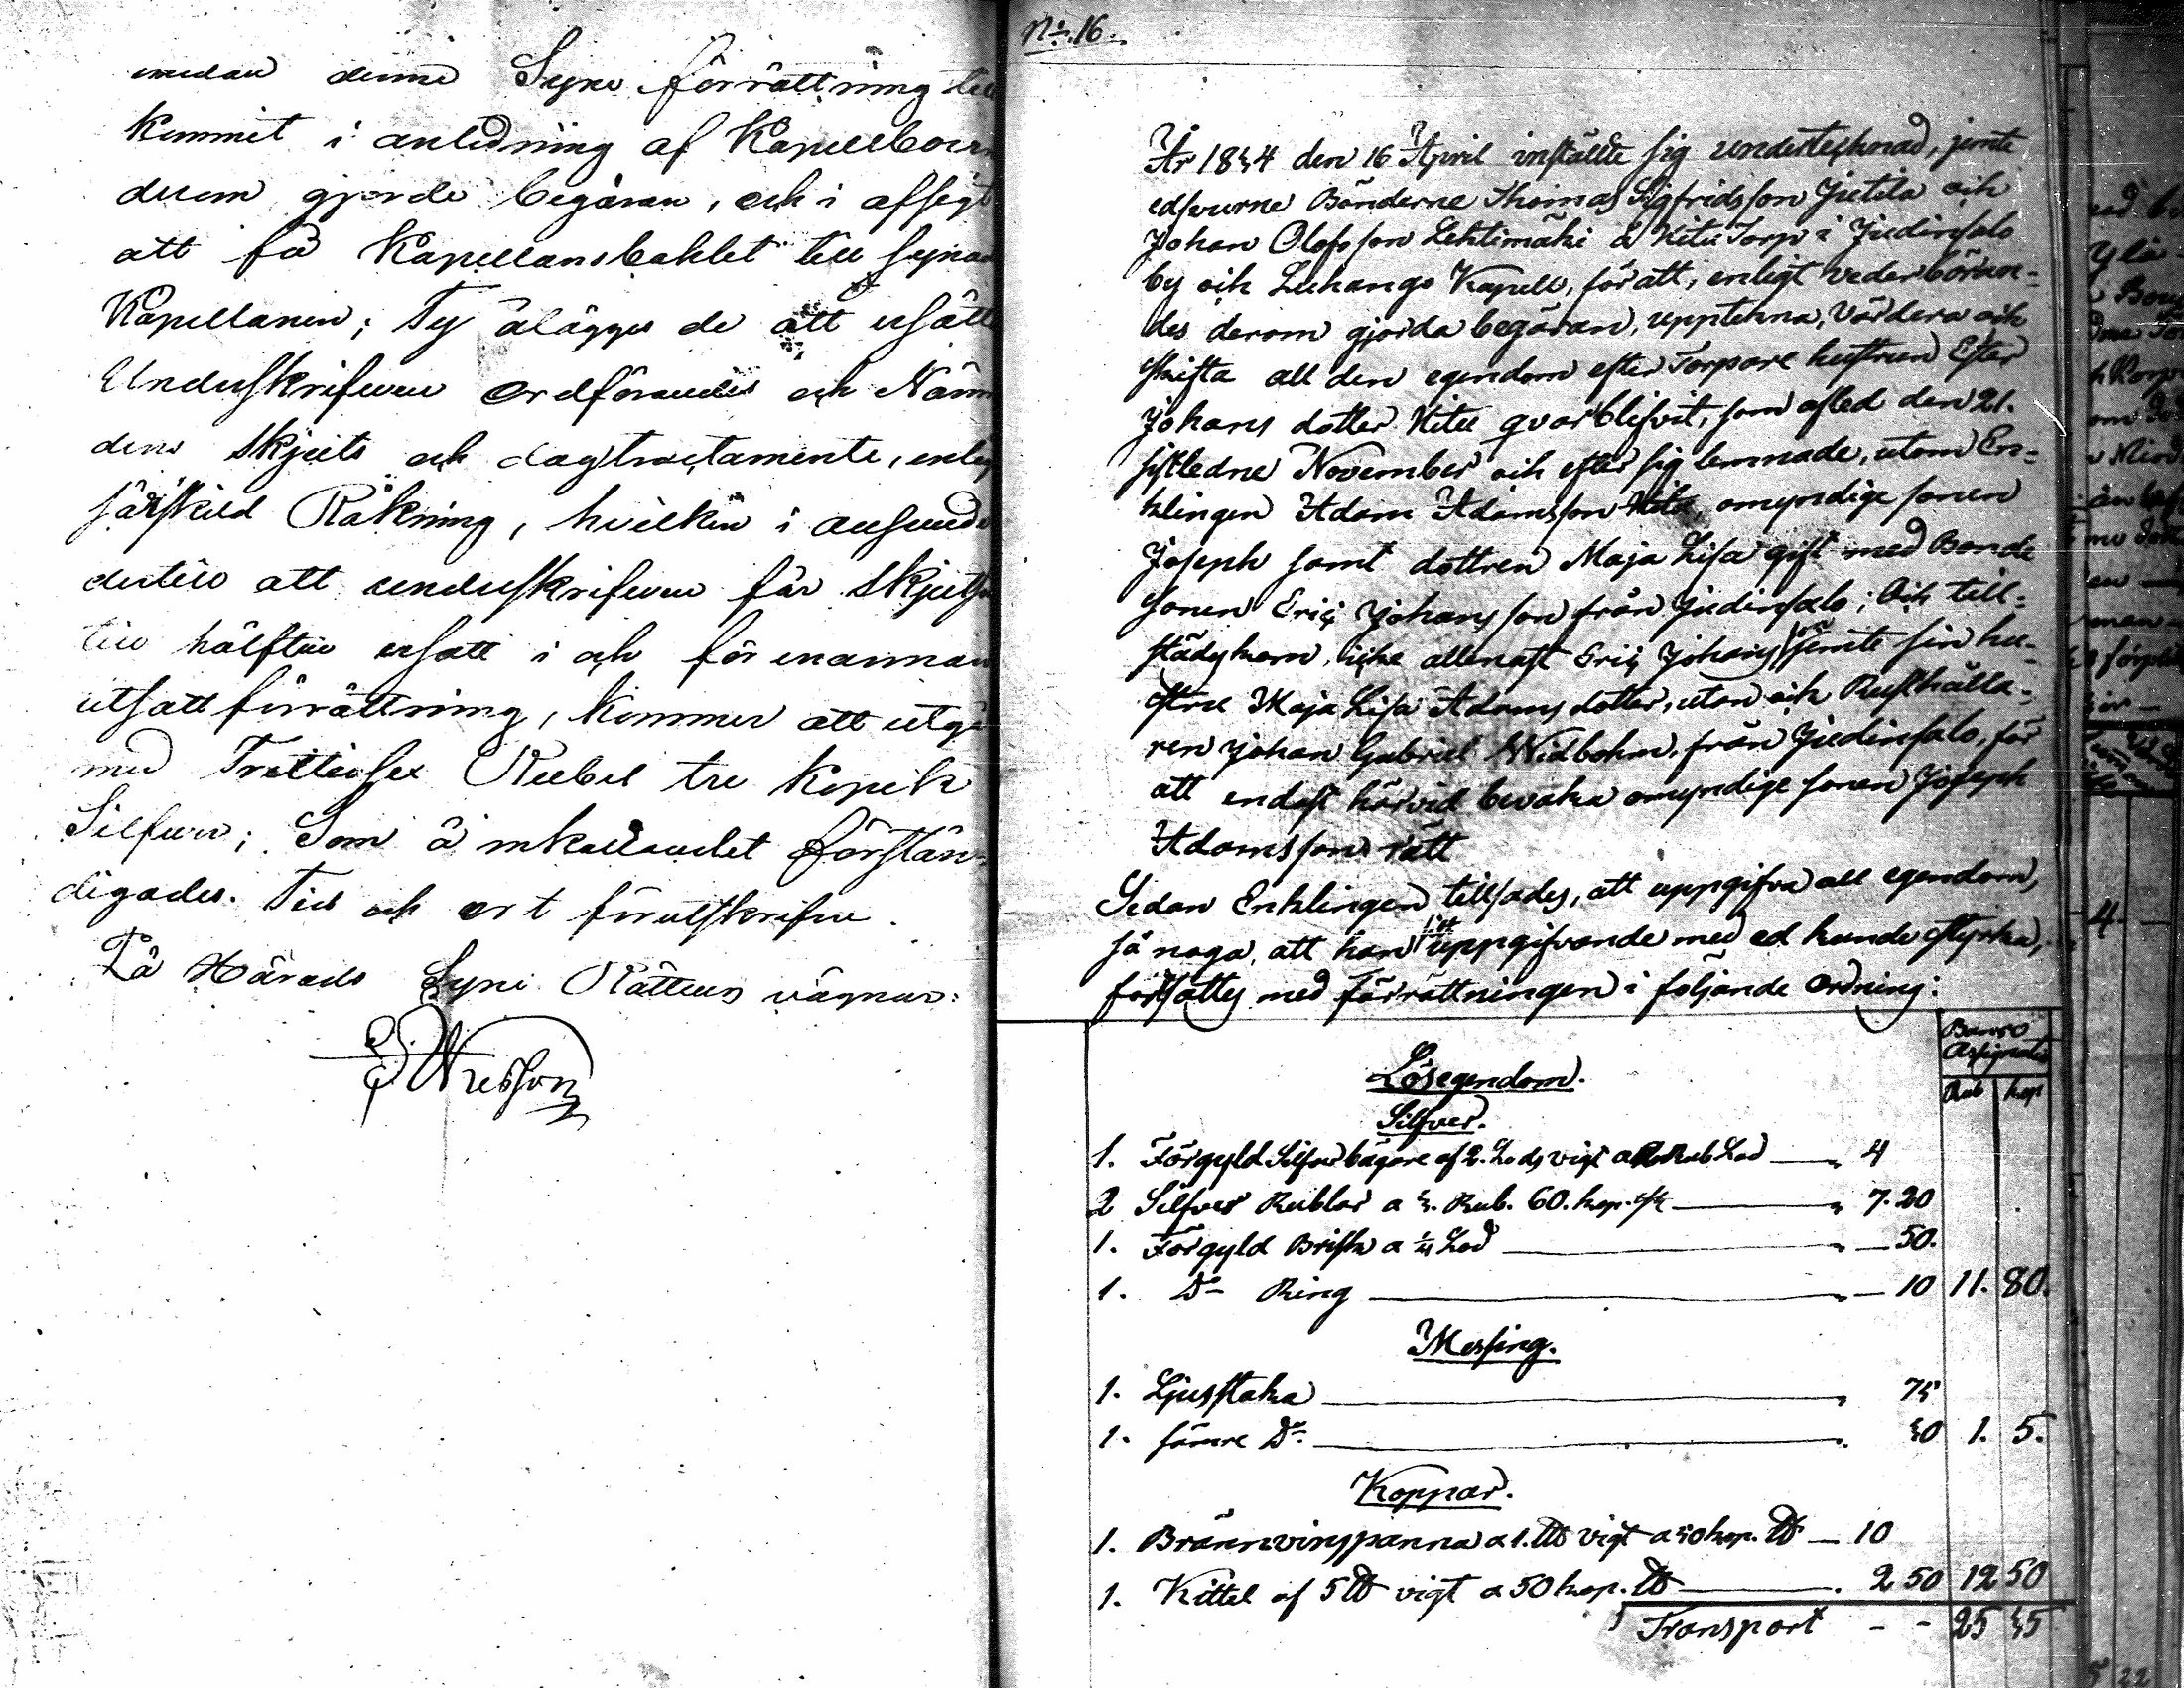 emedan denne Syne förrättning till
kommit i anledning af Kapellboer
derom gjorde begäran, och i afsigt
att få Kapellansbohlet till synad
Kapellanen; Ty ålägges de att ersätta
Underskrifven ordförandes och Nämn
dens skjuts och dagtractamente, enligt
särskild Räkning, hvilken i anseende
dertill att underskrifven får skjutsen
till hälften ersatt i och för enannan
utsatt förrättning, kommer att utgå
med Trettiosex Rubel tre Kopek
Silfver; Som å inkallandet förstän-
digades. Tid och ort förutskrifne.
På Härads Syne Rättens vägnar:
N:o 16.
År 1844 den 16 April instälde sig undertecknad, jemte
edsvurne Bönderne Thomas Sigfridsson Jutila och
Johan Olofsson Lehtimäki å Kitu Torp i Judinsalo
by och Luhango Kapell, för att, enligt vederböran-
des derom gjorda begäran, upptekna, värdera och
skifta all den egendom efter Torpare hustrun Ester
Johans dotter Kitu qvarblifvit, som afled den 21.
sistledne November och efter sig lemnade, utom En-
klingen Adam Adamsson Kitu, omyndige sonen
Joseph samt dottren Maja Lisa gift med Bonde
sonen Eric Johansson från Judinsalo; Och till-
städeskom, icke allenast Eric Johansson jemte sin hu-
stru Maja Lisa Adams dotter, utan och Rusthålla-
ren Johan Gabriel Widbohm, från Judinsalo, för
att endast härvid bevaka omyndige sonen Joseph
Adamssons rätt
Sedan Enklingen tillsades, att uppgifva all egendom,
så noga, att han sitt uppgifvande med ed kunde styrka,
fortsattes med Förrättningen i följande ordning:
Banco
Assignater
Rub kop
Lösegendom.
Silfver.
1. Förgyld Silfverbägare af 2. Lods vigt a 2 Rub Lod — 4
2 Silfver Rublar a 3. Rub. 60. kop. st — 7. 20
1. Förgyld Briska a ¼ Lod — 50.
1. D:o Ring — 10 11. 80.
Messing.
1. Ljusstaka — 75
1. sämre D:o — 30 1. 5.
Koppar.
1. Brännvinspanna a 1. L℔ vigt a 50 kop. ℔ — 10
1. Kittel af 5 ℔ vigt a 50 kop. ℔ — 2 50 12 50
Transport - - 25 35